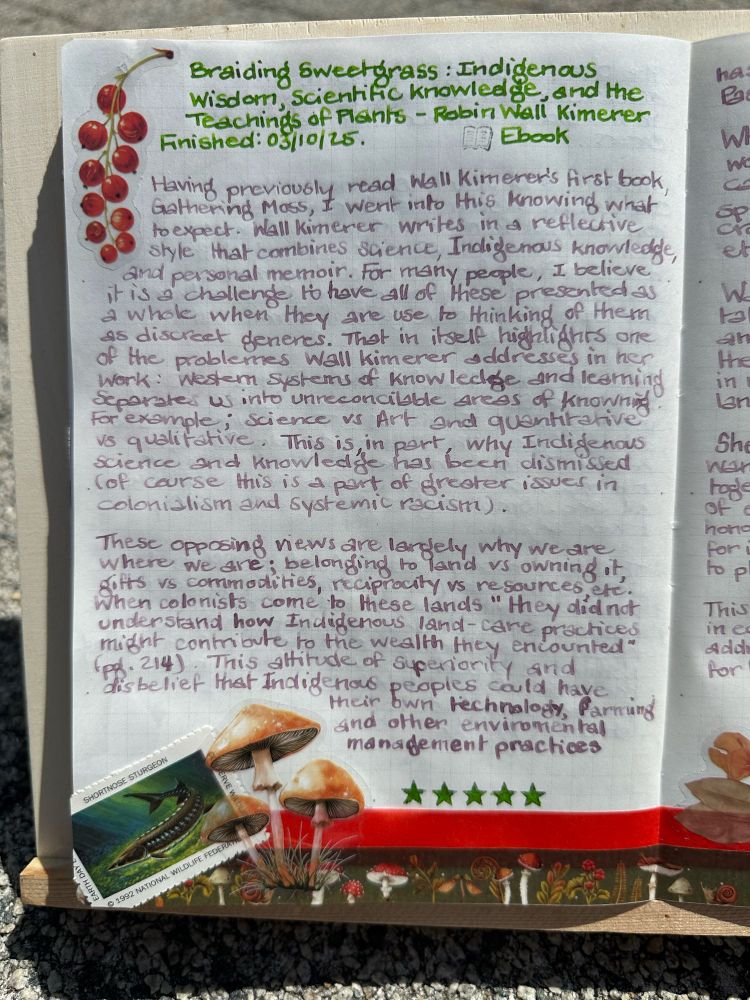 Braiding Sweetgrass : Indigenous
Wisdom, Scientific Knowledge, and the
Teachings of Plants - Robin Wall Kimerer
Finished: 03/10/25.
Ebook
Having previously read Wall Kimerer's first book,
Gathering Moss, I went into this knowing what
to expect. Wall Kimerer writes in a reflective
style that combines science, Indigenous knowledge,
and personal memoir. For many people, I believe
it is a challenge to have all of these presented as
a whole when they are use to thinking of them
as discreet generes. That in itself highlights one
of the problemes Wall Kimerer addresses in her
work: Western systems of knowledge and learning
separates us into unreconcilable areas of knowning.
For example; science vs Art and quantitative
vs qualitative. This is, in part, why Indigenous
science and knowledge has been dismissed
(of course this is a part of greater issues in
colonialism and systemic racism).
These opposing views are largely why we are
where we are; belonging to land vs owning it,
gifts vs commodities, reciprocity vs resources, etc.
When colonists come to these lands "they did not
understand how Indigenous land-care practices
might contribute to the wealth they encounted"
(pg. 214). This attitude of superiority and
disbelief that Indigenous peoples could have
their own technology, farming
and other enviromental
management practices
SHORTNOSE STURGEON
EARTH DAY
© 1992 NATIONAL WILDLIFE FEDERAT
has
Wh
wo
Sp
cra
et
W
tal
an
the
in
lan
She
wan
toge
of
hono
for i
to pl
This
in ea
addi
for